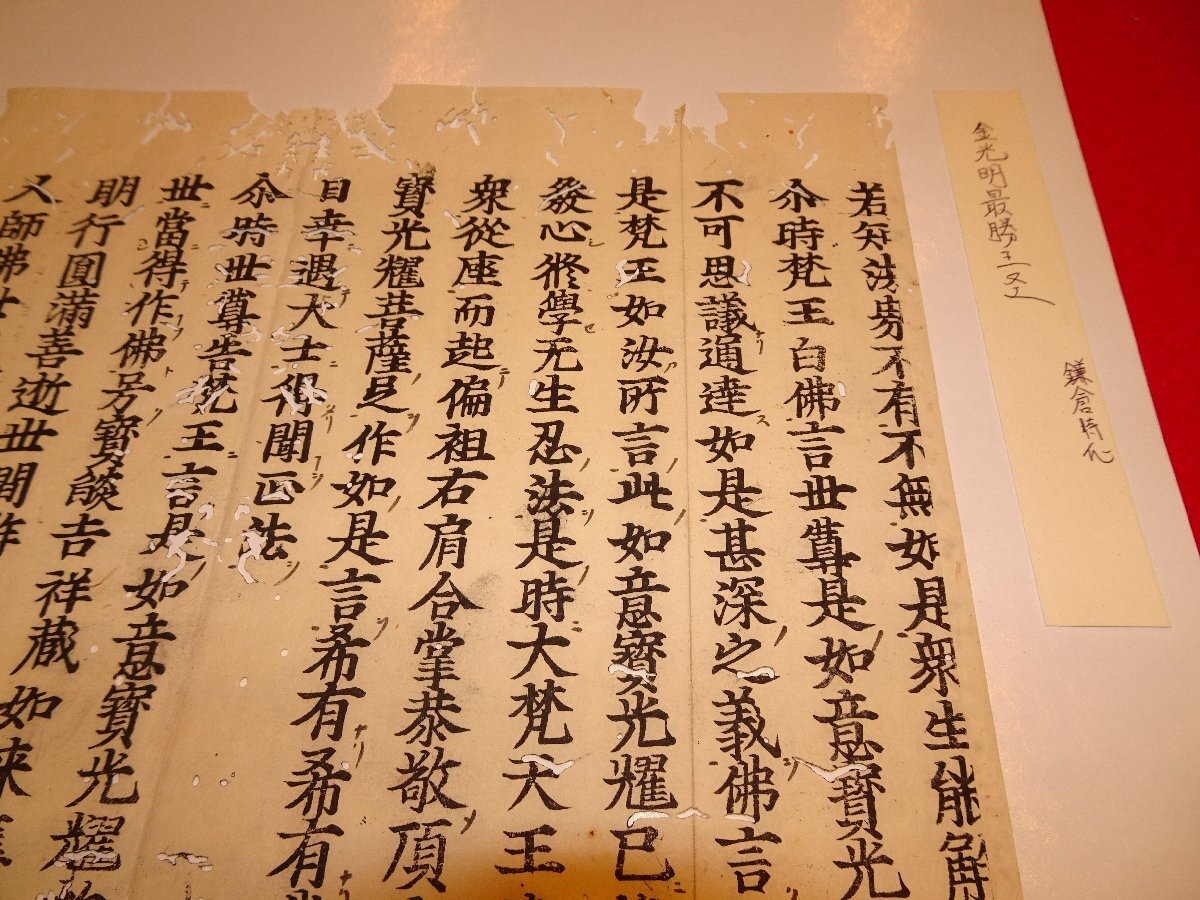 金光明最勝王
鎌倉時代
若知法界不有不無如是衆生能解
尒時梵王白佛言世尊是如意寶光
不可思議通達如是甚深之義佛言
是梵王如汝所言此如意寶光耀已
發心修學无生忍法是時大梵天王
衆從座而起偏袒右肩合掌恭敬頂
寶光耀菩薩足作如是言希有希有
日幸遇大士得聞正法
尒時世尊告梵王言是如意寶光耀
世當得作佛号寶燄吉祥藏如来
明行圓滿善逝世間
人師佛世